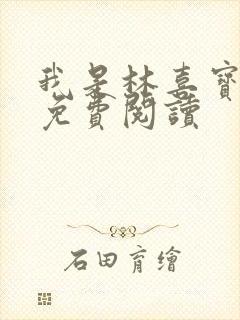 我是林喜寶
免費閱讀
石田育繪